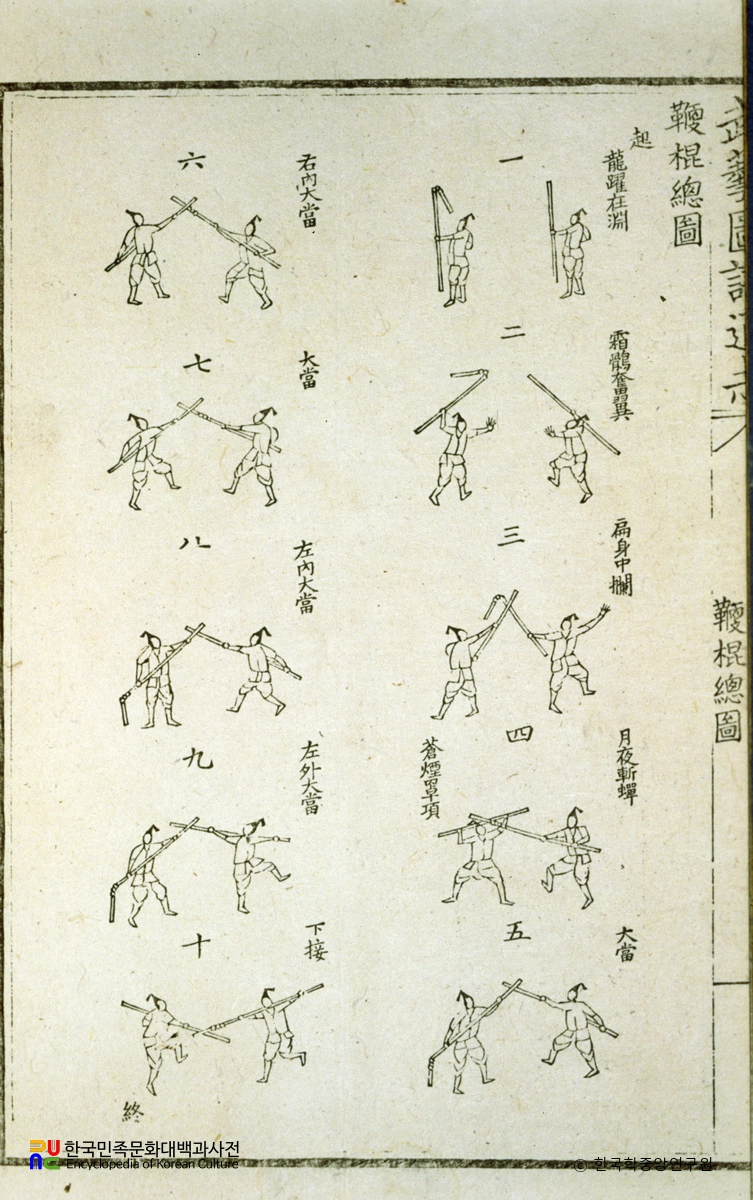 武藝圖譜通志
鞭棍總圖
鞭棍總圖
起
一
龍躍在淵
二
霜鶻奮翼
三
扁身中攔
四
月夜斬蟬
蒼煙罩項
五
大當
六
右內大當
七
大當
八
左內大當
九
左外大當
十
下接
終
한국민족문화대백과사전
Encyclopedia of Korean Culture
ⓒ 한국학중앙연구원